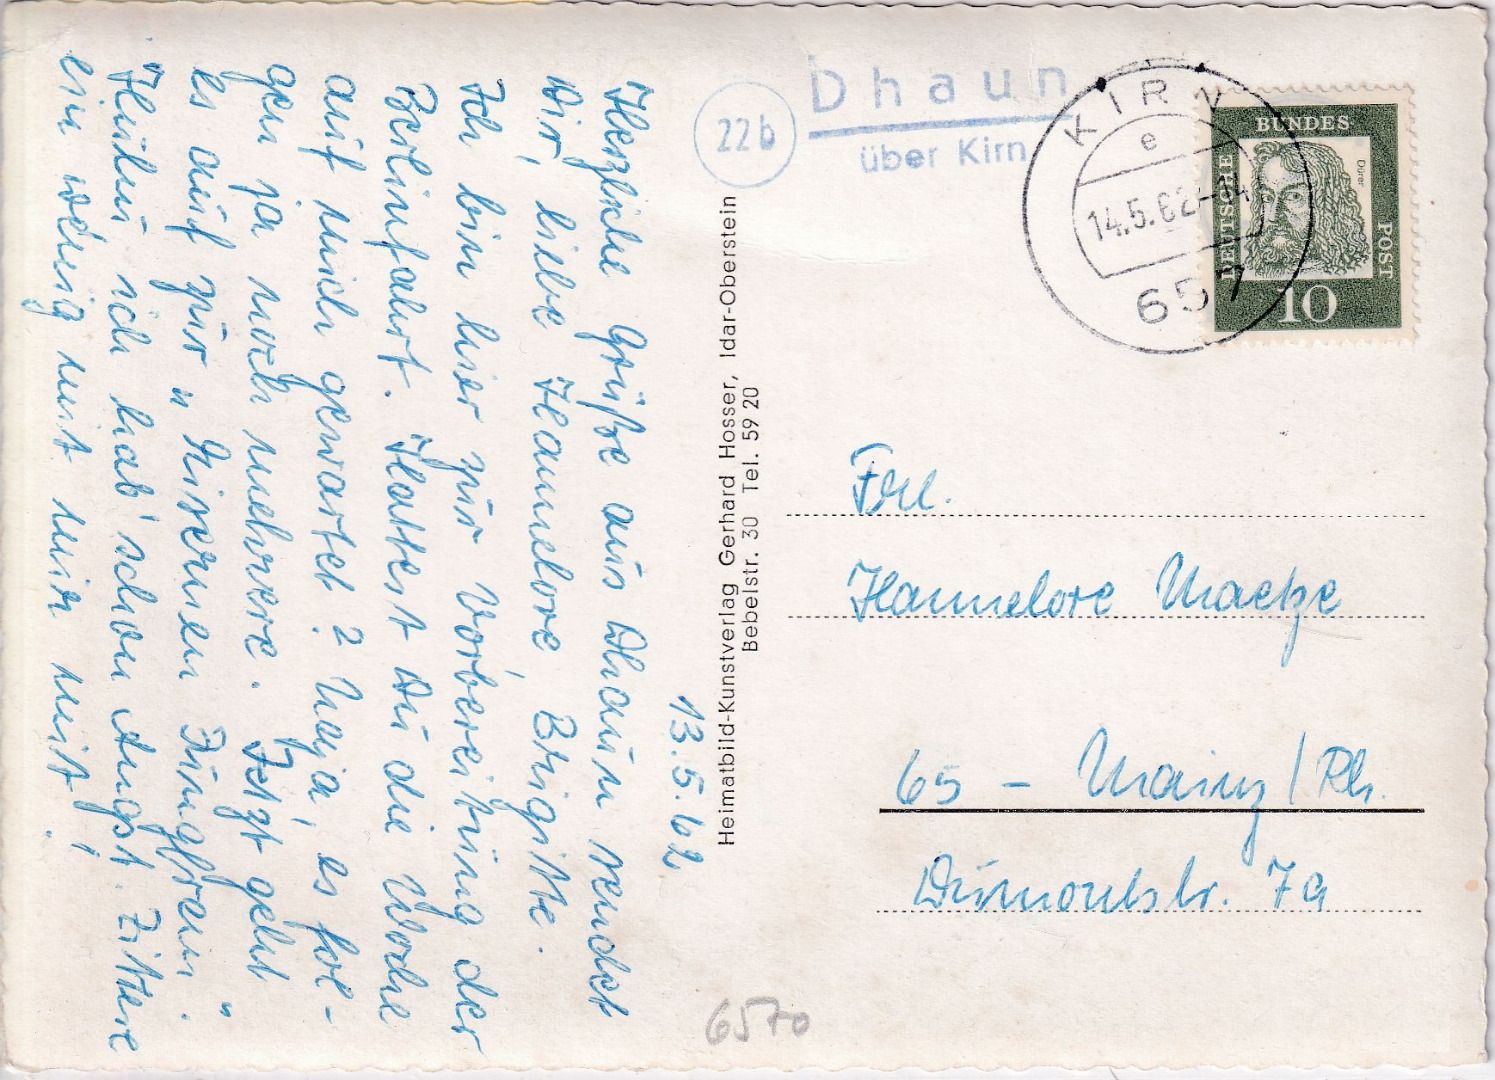 13.5.62
Herzliche Grüße aus Dhaun sendet
Dir, liebe Hannelore Brigitte.
Ich bin hier zur Vorbereitung der
Berlinfahrt. Hattest Du die Woche
auf mich gewartet? Naja, es fol-
gen ja noch mehrere. Jetzt geht
es auf zur "Eisernen Jungfrau".
Huhu ich hab' schon Angst. Zittere
ein wenig mit mir mit!
Heimatbild-Kunstverlag Gerhard Hosser, Idar-Oberstein
Bebelstr. 30 Tel. 59 20
22b
Dhaun
über Kirn
KIRN
e
14.5.62-14
657
DEUTSCHE
BUNDES
POST
Dürer
10
Frl.
Hannelore
65 - Mainz/Rh.
7a
6570